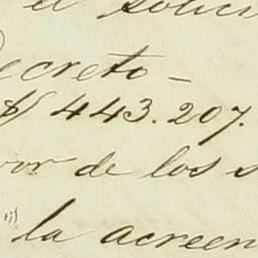 el solici
ecreto -
$ 443.207.
or de los s
la acreen